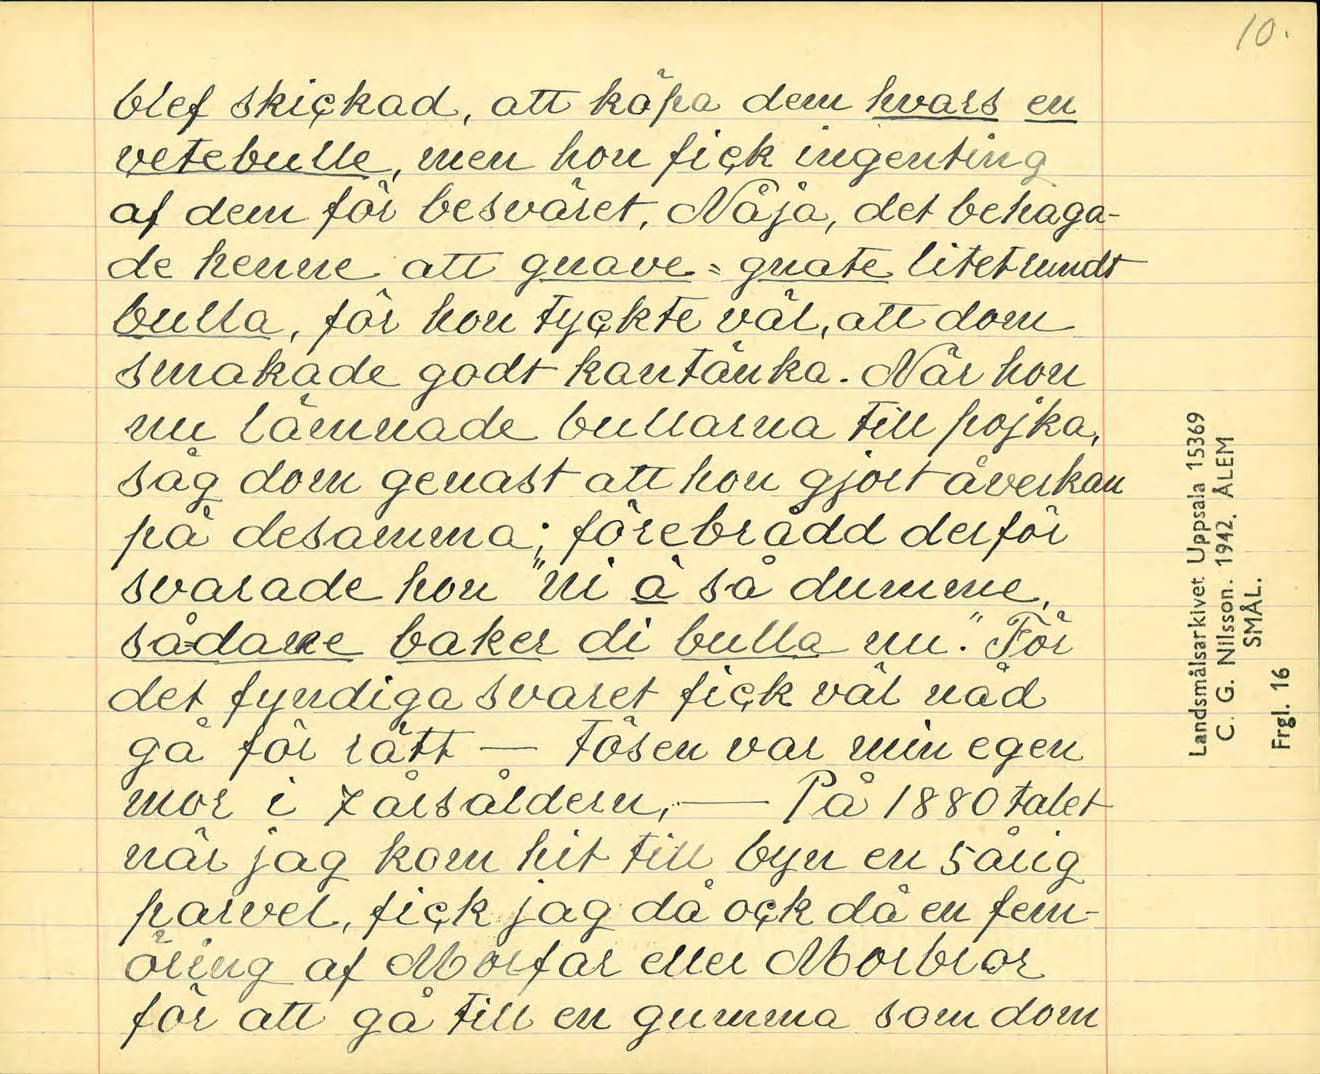 10.
blef skickad, att köpa dem hvars en
vetebulle, men hon fick ingenting
af dem för besväret, Nåja, det behaga-
de henne att gnave = gnate litet rundt
bulla, för hon tyckte väl, att dom
smakade godt kantänka. När hon
nu lämnade bullarna till pojka,
såg dom genast att hon gjort åverkan
på desamma; förebrådd derför
svarade hon "Ni ä så dumme,
sådane baker di bulla nu." För
det fyndiga svaret fick väl nåd
gå för rätt — tösen var min egen
mor i 7 årsåldern, — På 1880 talet
när jag kom hit till byn en 5 årig
parvel, fick jag då ock då en fem-
öring af Morfar eller Morbror
för att gå till en gumma som dom
Landsmålsarkivet Uppsala 15369
C. G. Nilsson. 1942. ÅLEM
SMÅL.
Frgl. 16